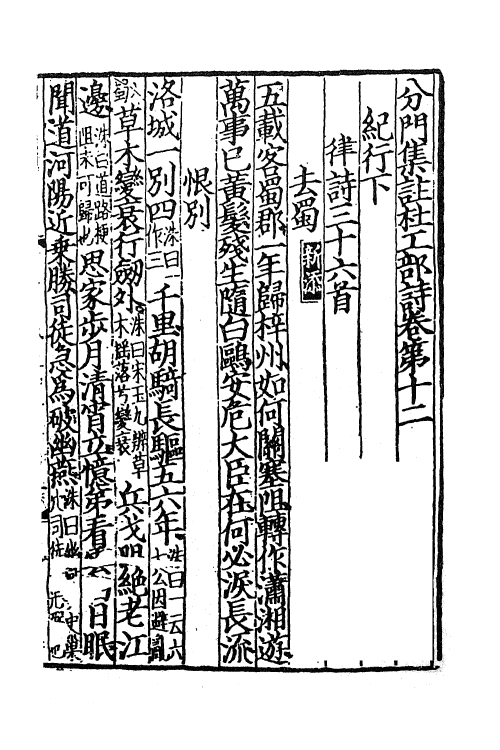 分門集註杜工部詩卷第十二
紀行下
律詩三十六首
去蜀 新添
五載客蜀郡一年歸梓州如何關塞阻轉作瀟湘遊
萬事已黃髮殘生隨白鷗安危大臣在何必淚長流
恨別
洛城一別四洙曰一作三千里胡騎長驅五六年洙曰一云六七公因避亂
蜀草木變衰行劒外洙曰宋玉九辯草木揺落兮變衰兵戈阻絕老江
邊洙曰道路梗阻未可歸也思家步月清宵立憶弟看日眠
聞道河陽近乗勝司徒急為破幽燕洙曰司徒